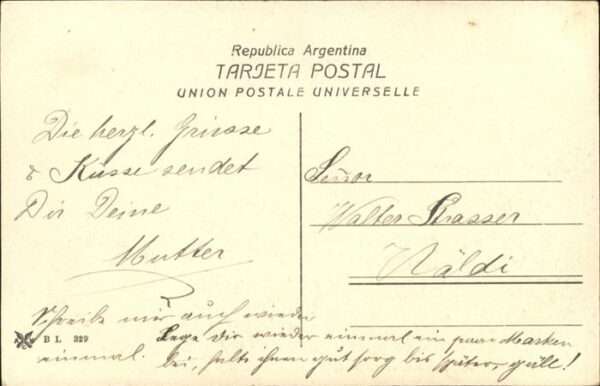 Republica Argentina
TARJETA POSTAL
UNION POSTALE UNIVERSELLE
Die herzl. Grüsse
& Küsse sendet
Dir Deine
Mutter
Señor
Walter Strasser
Näldi
Schreibe mir auch wieder
einmal.
B L 329
Lege dir wieder einmal ein paar Marken
bei, halte ihnen gut sorg bis später, gäll!